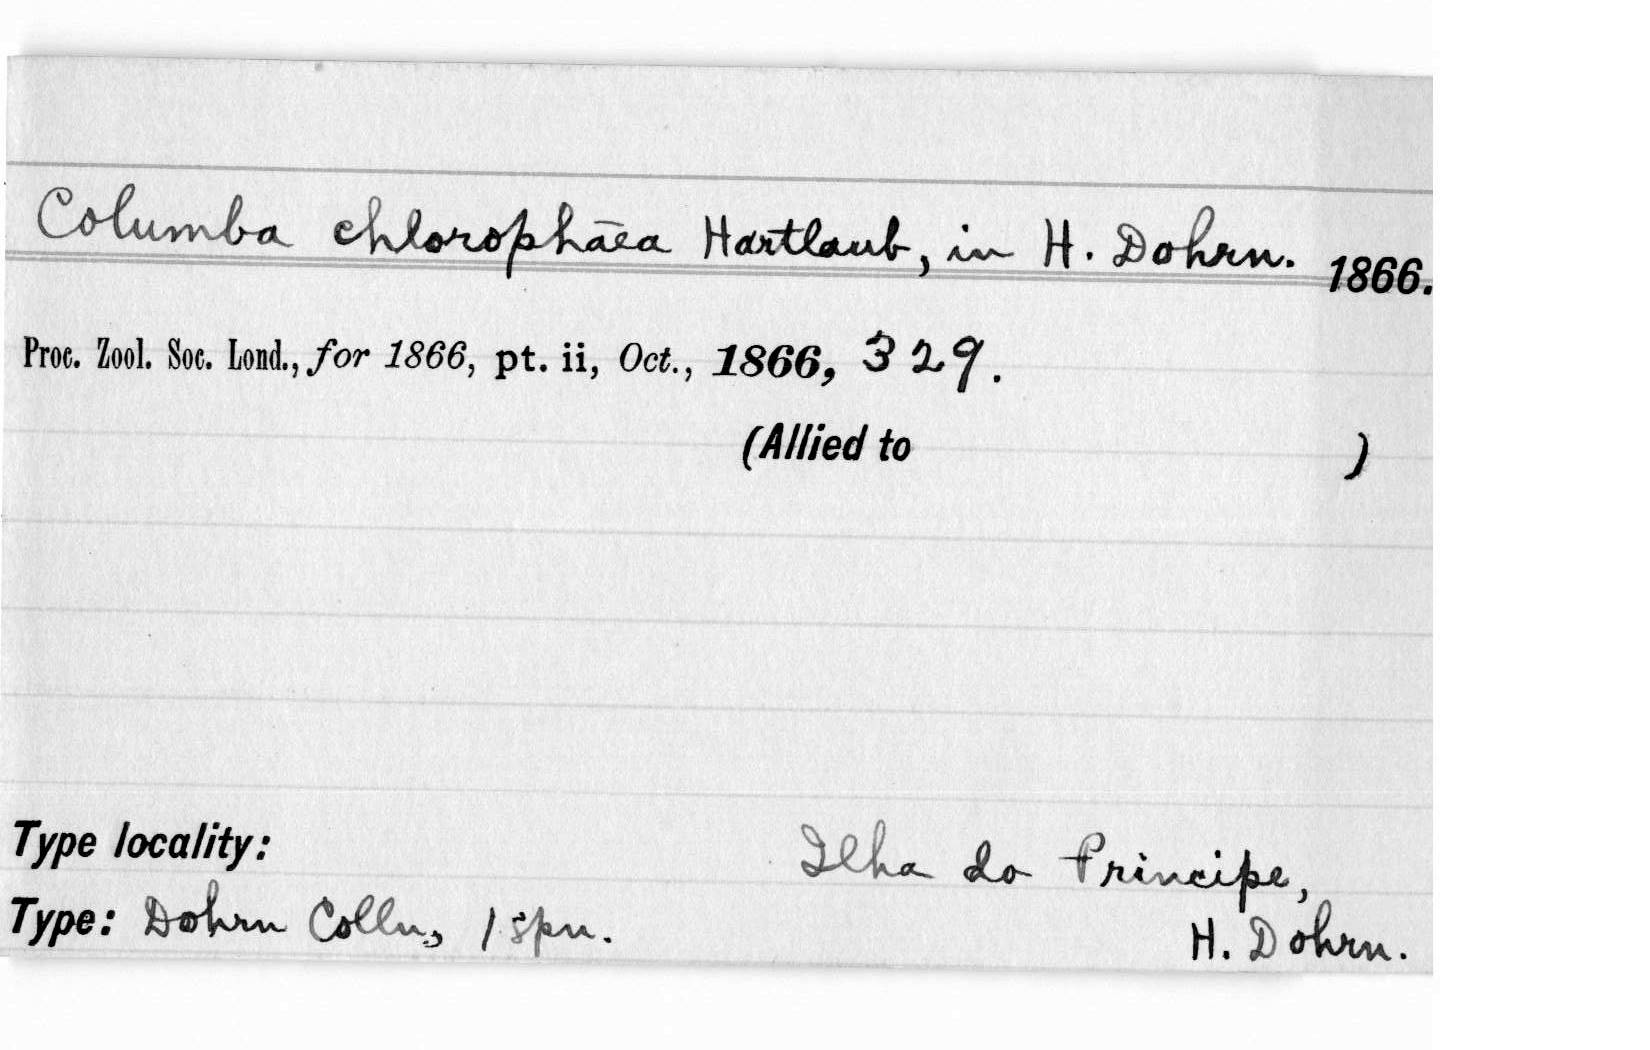 Columba chlorophāea Hartlaub, in H. Dohrn. 1866.
Proc. Zool. Soc. Lond., for 1866, pt. ii, Oct., 1866, 329.
(Allied to )
Type locality: Ilha do Principe,
Type: Dohrn Colln, 1 spn. H. Dohrn.